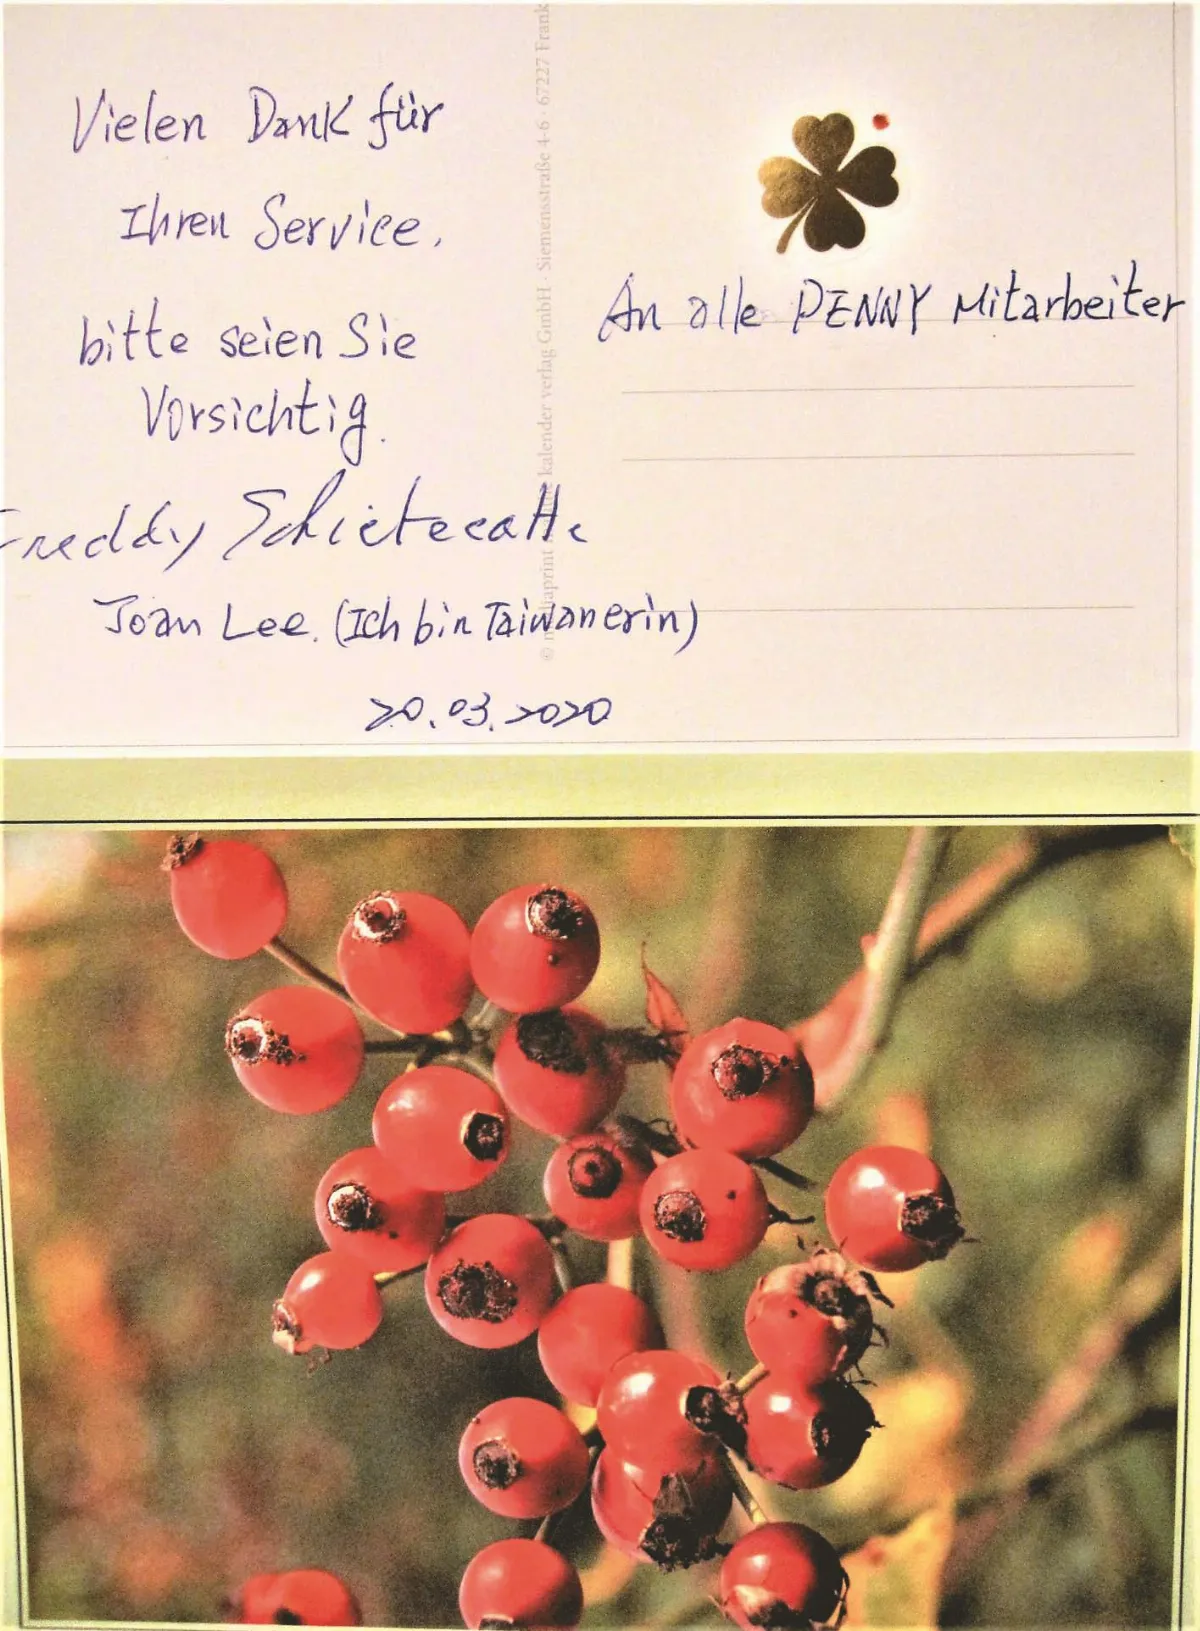 Vielen Dank für
Ihren Service.
bitte seien Sie
Vorsichtig.
Freddy Schietecatte
Joan Lee. (Ich bin Taiwanerin)
20.03.2020
An alle PENNY Mitarbeiter
kalender verlag GmbH · Siemensstraße 4-6 · 67227 Frank